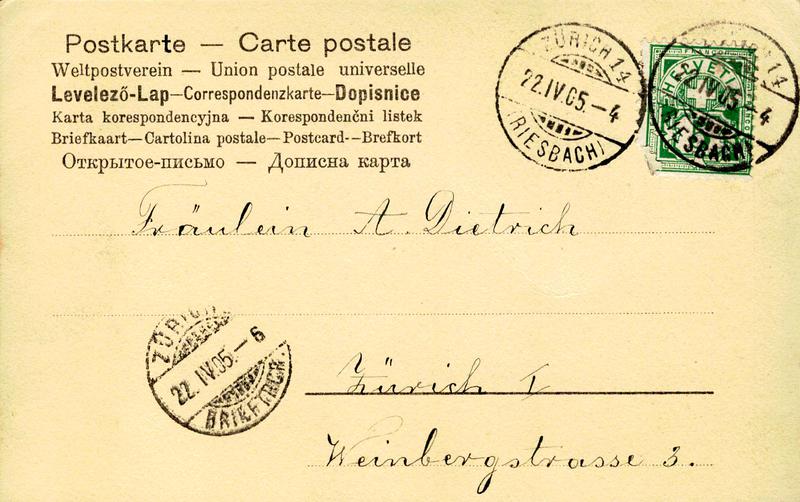 Postkarte — Carte postale
Weltpostverein — Union postale universelle
Levelező-Lap—Correspondenzkarte—Dopisnice
Karta korespondencyjna — Korespondenčni listek
Briefkaart—Cartolina postale—Postcard--Brefkort
Открытое-письмо — Дописна карта
ZÜRICH 14
22.IV.05.–4
(RIESBACH)
HELVETIA
ZÜRICH
22.IV.05.–6
BRIEFTRGR.
Fräulein A. Dietrich
Zürich I
Weinbergstrasse 3.